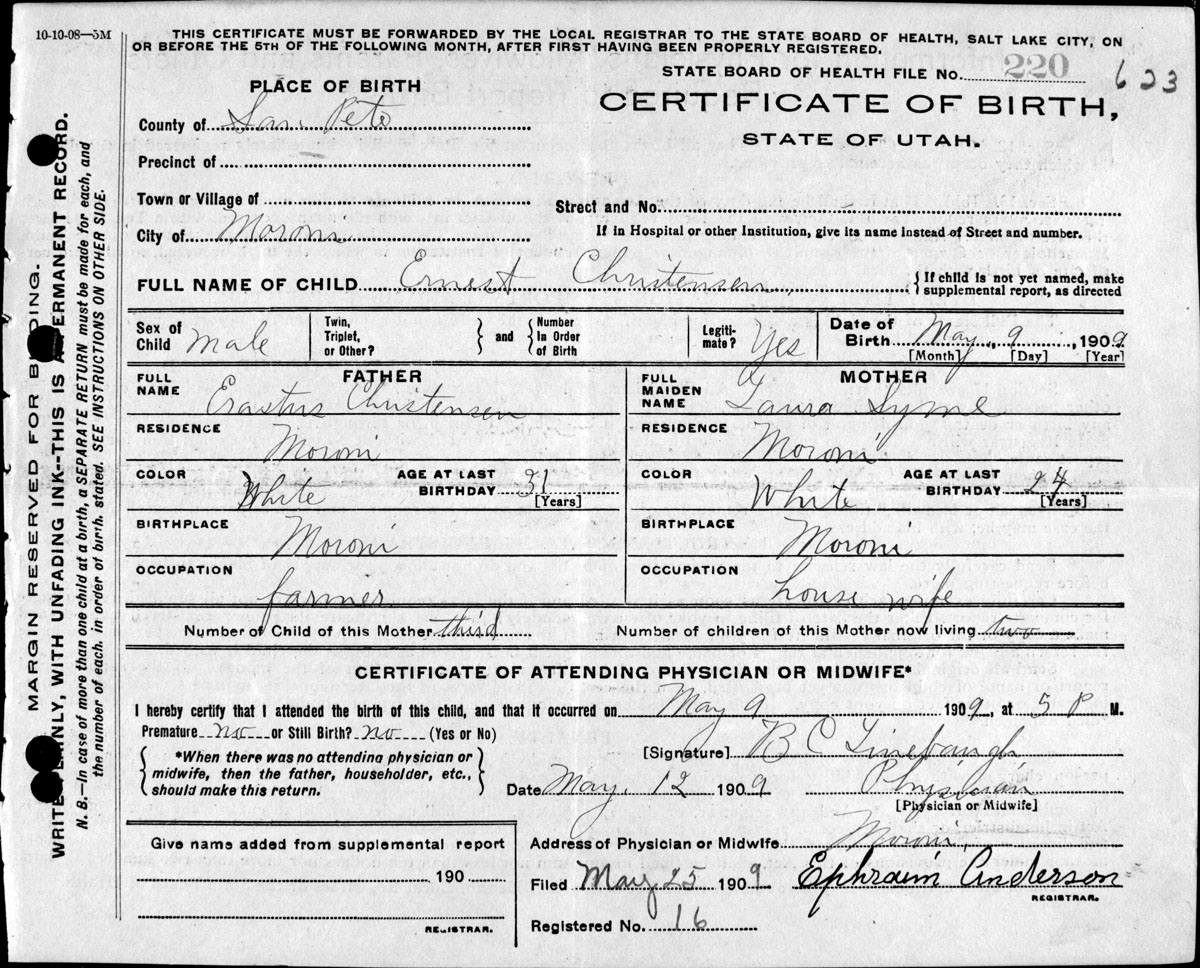 10-10-08—5M
THIS CERTIFICATE MUST BE FORWARDED BY THE LOCAL REGISTRAR TO THE STATE BOARD OF HEALTH, SALT LAKE CITY, ON
OR BEFORE THE 5TH OF THE FOLLOWING MONTH, AFTER FIRST HAVING BEEN PROPERLY REGISTERED.
STATE BOARD OF HEALTH FILE No. 220 623
PLACE OF BIRTH
CERTIFICATE OF BIRTH,
STATE OF UTAH.
County of San Pete
Precinct of
Town or Village of
Street and No.
City of Moroni
If in Hospital or other Institution, give its name instead of Street and number.
FULL NAME OF CHILD Ernest Christensen { If child is not yet named, make supplemental report, as directed
Sex of Child Male Twin, Triplet, or Other? } and { Number In Order of Birth Legiti-mate? Yes Date of Birth May 9, 1909
[Month] [Day] [Year]
FATHER
FULL NAME Erastus Christensen
RESIDENCE
Moroni
COLOR White AGE AT LAST BIRTHDAY 31
[Years]
BIRTHPLACE
Moroni
OCCUPATION
farmer
MOTHER
FULL MAIDEN NAME Laura Syme
RESIDENCE
Moroni
COLOR White AGE AT LAST BIRTHDAY 24
[Years]
BIRTHPLACE
Moroni
OCCUPATION
house wife
Number of Child of this Mother third Number of children of this Mother now living two
CERTIFICATE OF ATTENDING PHYSICIAN OR MIDWIFE*
I hereby certify that I attended the birth of this child, and that it occurred on May 9 1909, at 5 P M.
Premature no or Still Birth? no (Yes or No)
[Signature] B C Linebaugh
{ *When there was no attending physician or
midwife, then the father, householder, etc.,
should make this return. }
Date May. 12 1909 Physician
[Physician or Midwife]
Give name added from supplemental report
190
REGISTRAR.
Address of Physician or Midwife Moroni
Filed May 25 1909 Ephraim Anderson
REGISTRAR.
Registered No. 16
MARGIN RESERVED FOR BINDING.
WRITE PLAINLY, WITH UNFADING INK--THIS IS A PERMANENT RECORD.
N. B.—In case of more than one child at a birth, a SEPARATE RETURN must be made for each, and
the number of each, in order of birth, stated. SEE INSTRUCTIONS ON OTHER SIDE.